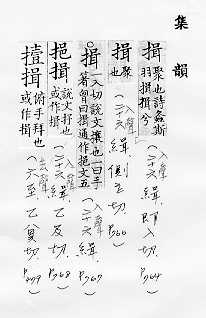 集韻
揖 聚也詩螽斯羽揖揖兮
(二十六緝 即入切. P764)
揖 聚也
(二十六緝 側立切. P766)
揖 一入切說文攘也一曰手著胷曰揖通作挹文五
(二十六緝. P767)
挹揖 說文抒也或作揖
(二十六緝 乙及切. P768)
撎揖 俯手拜也或作揖
(去聲 六至 乙冀切. P479)